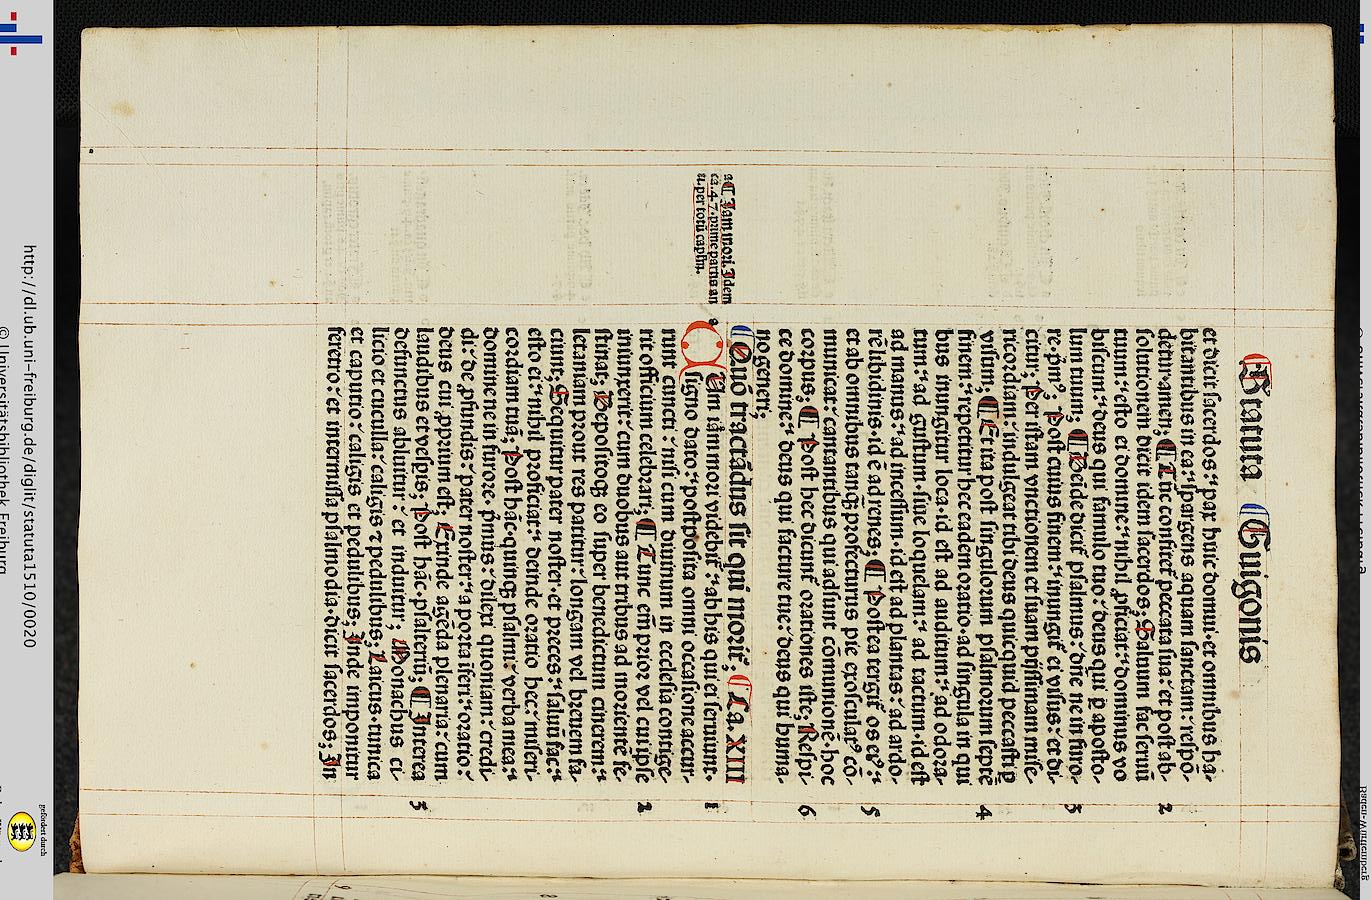 Statuta Guigonis
et dicit sacerdos: pax huic domui. et omnibus ha-
bitantibus in ea: spargens aquam sanctam: respō-
detur. amen; ¶ Tūc confitet̄ peccata sua: et post ab-
solutionem dicit idem sacerdos; Saluum fac seruū
tuum: esto ei domine: nihil ꝓficiat: dominus vo
biscum: deus qui famulo tuo: deus qui ꝑ aposto-
lum tuum; ¶ Deīde dicit̄ psalmus: dñe ne in furo-
re. pm̄º; Post cuius finem: inungit̄ ei visus: et di-
citur; Per istam vnctionem et suam pijssimam mise-
ricordiam: indulgeat tibi deus quicquid peccasti ꝑ
visum; ¶ Et ita post singulorum psalmorum septē
finem: repetitur hec eadem oratio. ad singula in qui
bus inungitur loca. id est ad auditum: ad odora-
tum: ad gustum. siue loquelam: ad tactum. id est
ad manus: ad incessum. id est ad plantas: ad ardo-
rē libidinis. id ē ad renes; ¶ Postea tergit̄ os eiº:
et ab omnibus tanqꝫ profecturus pie exosculat̄: cō-
municat: cantantibus qui adsunt communionē. hoc
corpus; ¶ Post hec dicunt̄ orationes iste; Respi-
ce domine: deus qui facture tue: deus qui huma-
no generi;
¶ Quō tractādus sit qui morit̄; ¶ Ca. XIII
a ¶ Iam mori. Idem
ca. 47. prime partis an
ti. per totū capl̄m.
a
CUm iam mori videbit̄: ab his qui ei seruunt.
signo dato: postposita omni occasione accur-
runt cuncti: nisi cum diuinum in ecclesia contige-
rit officium celebrari; ¶ Tunc em̄ prior vel cui ipse
iniunxerit: cum duobus aut tribus ad morientē fe-
stinat; Depositoqꝫ eo super benedictum cinerem:
letaniam prout res patitur: longam vel breuem fa-
ciunt; Sequitur pater noster. et preces: saluū fac:
esto ei: nihil proficiat: deinde oratio hec: miseri-
cordiam tuā; Post hāc. quinqꝫ psalmi: verba mea:
domine ne in furore. p̄mus: dilexi quoniam: credi-
di: de ꝓfundis: pater noster: a porta īferi: oratio:
deus cui ꝓprium est. Exinde agēda plenaria: cum
laudibus et vespis; Post hāc. psalteriū; ¶ Interea
defunctus abluitur: et induitur; Monachus ci-
licio et cuculla: caligis ⁊ pedulibus; Laicus. tunica
et caputio: caligis et pedulibus; Inde imponitur
feretro: et intermissa psalmodia. dicit sacerdos; In
2
3
4
5
6
1
2
3
http://dl.ub.uni-freiburg.de/diglit/statuta1510/0020
© Universitätsbibliothek Freiburg
gefördert durch